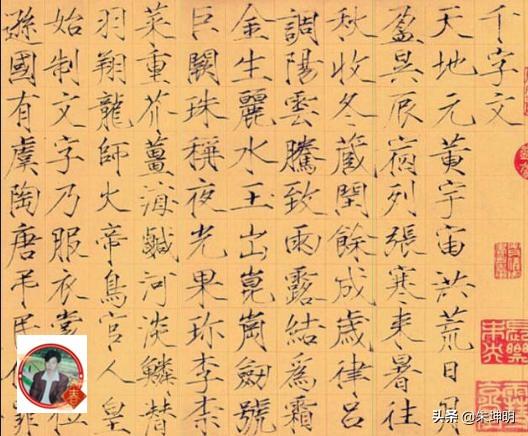 千字文
天地元黃宇宙洪荒日月
盈昃辰宿列張寒來暑往
秋收冬藏閏餘成歲律呂
調陽雲騰致雨露結為霜
金生麗水玉出崑崗劍號
巨闕珠稱夜光果珍李柰
菜重芥薑海鹹河淡鱗潛
羽翔龍師火帝鳥官人皇
始制文字乃服衣裳位
遜國有虞陶唐弔民伐罪
头条 @朱坤明